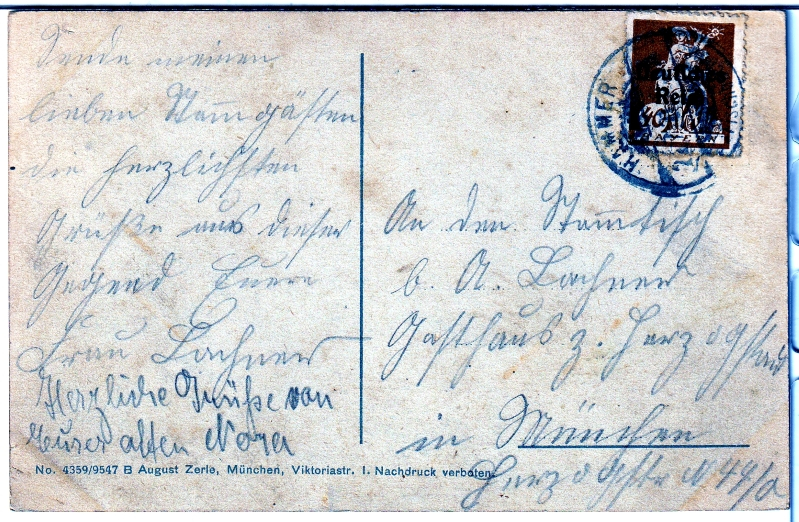 Sende meinen
lieben Stammgästen
die herzlichsten
Grüße aus dieser
Gegend Euere
Frau Lachner
Herzliche Grüße von
Eurer alten Nora
An den Stammtisch
b. A. Lachner
Gasthaus z. Herzogstand
in München
Herzogstr N 44/0
No. 4359/9547 B August Zerle, München, Viktoriastr. 1. Nachdruck verboten.
HAMMER
Deutsches
Reich
BAYERN